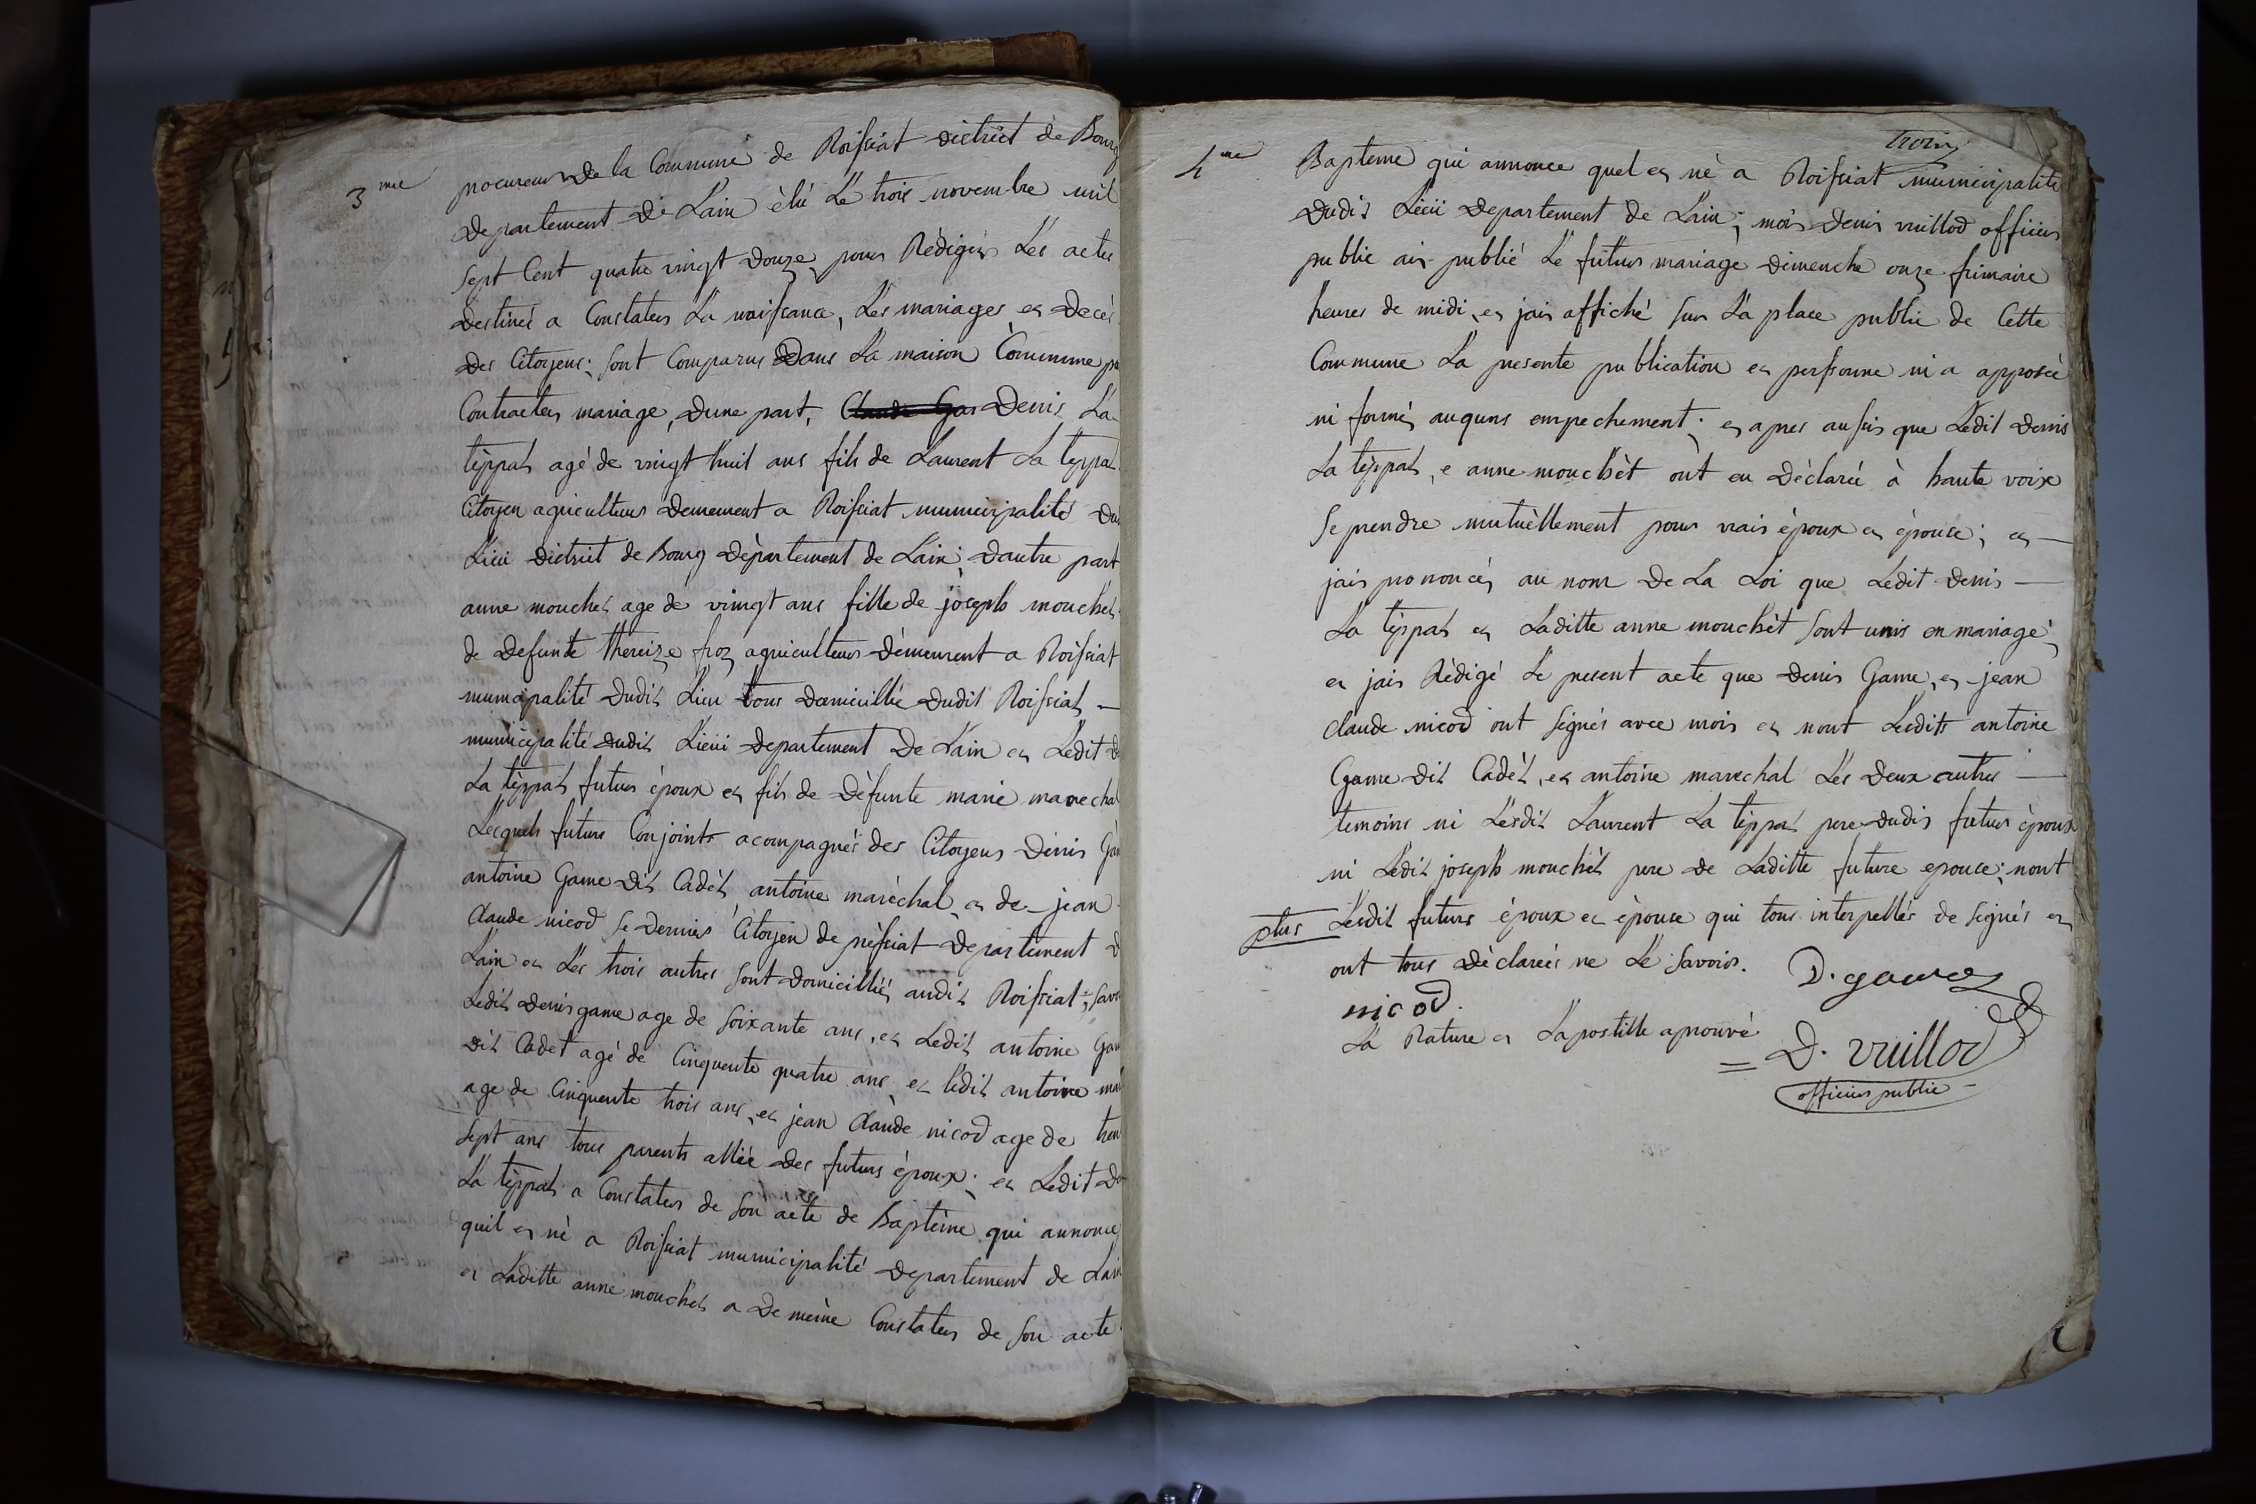 3 me
procureur de la Commune de Roissiat District de Bourg
Departement De Lain èlü Le trois novembre mil
sept Cent quatre vingt Douze pour Rédigér Les actes
Destineé a Constater La naissance, Les mariages et Decès
Des Citoyens; sont Comparus Dans La maison Commune
Contracter mariage, Dune part, Denis La
tèppat agé de vingt huit ans fils de Laurent La teppat
Citoyen agriculteur Demement a Roissiat municipalité
Lieu District de Bourg Département de Lain; Dautre part
anne mouchet age de vingt ans fille de joseph mouchet
de Defunte thereize froz agriculteur Démeurent a Roissiat
municipalité Dudit Lieu tous Domicillié Dudit Roissiat
municipalité dudit Lieüi Departement De Lain et Ledit
La tèppat futur époux et fils de Défunte marie marechal
Lesquels futurs Conjoints acompagnés des Citoyens Dénis
antoine Game Dit Cadèt, antoine maréchal, et de jean
Claude nicod se Dernier Citoyen de prèssiat Departement
Lain et Les trois autres sont Domicilliés audit Roissiat;
Ledit Denis game age de soixante ans, et Ledit antoine
Dit Cadet agé de Cinquente quatre ans et lédit antoine
age de Cinquente trois ans, et jean Claude nicod age de
sept ans tous parents alliée Des futurs époux; et Ledit
La tèppat a Constater de son acte de Baptème qui annonce
quil et nè a Roissiat municipalité Departement de Lain
et Laditte anne mouchet a De même Constater de son acte
4 me
Bapteme qui annonce quel et nè a Roissiat municipalité
Dudit Lieüi Departement de Lain; mois Denis vuillod officier
public ais publié Le futur mariage Dimenche onze frimaire
heures de midi, et jais affiché sur La place public de Cette
Commune La presente publication et personne ni a apposèe
ni formés auquns empechement; et apres aussis que Ledit Denis
La tèppat, e anne mouchèt ont eu Déclarée à haute voix
Se prendre mutuèllement pour vrais époux et épouse; et
jais prononcés au nom De La Loi que Ledit Denis
La tèppat et Laditte anne mouchèt sont unis en mariage
et jais Rèdigé Le present acte que Denis Game, et jean
Claude nicod ont Signés avec mois et nont Lesdits antoine
Game Dit Cadèt, et antoine marechal Les Deux autres
temoins ni Lesdit Laurent La tèppat pere Dudit futur époux
ni Ledit joseph mouchèt pere de Laditte future epouse; nont
plus Lesdit futurs époux et épouse qui tous interpellés de Signés et
ont tous Déclareés ne Le Savoir. D. game
nicod.
La Rature et Lapostille aprouvé
= D. vuillod
officier public